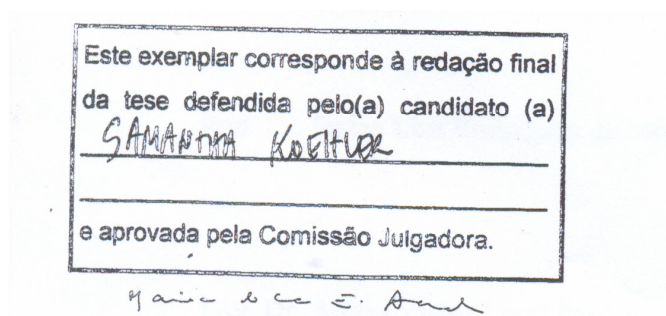 Este exemplar corresponde à redação final
da tese defendida pelo(a) candidato (a)
SAMANTHA KOEHLER
e aprovada pela Comissão Julgadora.